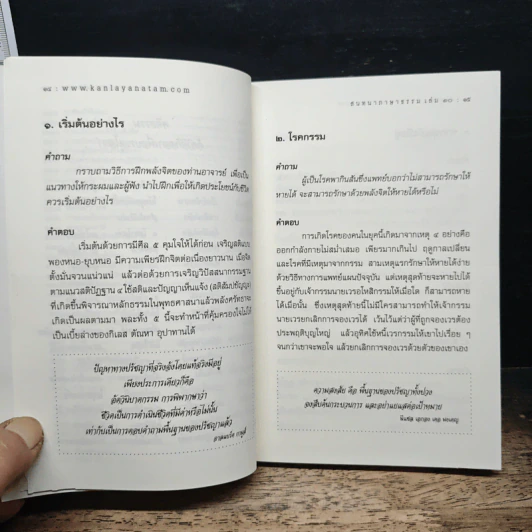 ๑๔ : www.kanlayanatam.com
๑. เริ่มต้นอย่างไร
คำถาม
กราบถามวิธีการฝึกพลังจิตของท่านอาจารย์ เพื่อเป็น
แนวทางให้กระผมและผู้ฟัง นำไปฝึกเพื่อให้เกิดประโยชน์กับชีวิต
ควรเริ่มต้นอย่างไร
คำตอบ
เริ่มต้นด้วยการมีศีล ๕ คุมใจให้ได้ก่อน เจริญสติแบบ
พองหนอ-ยุบหนอ มีความเพียรฝึกจิตต่อเนื่องยาวนาน เมื่อจิต
ตั้งมั่นจวนแน่วแน่ แล้วต่อด้วยการเจริญวิปัสสนากรรมฐาน
ตามแนวสติปัฏฐาน ๔ ใช้สติและปัญญาเห็นแจ้ง (สติสัมปชัญญะ)
ที่เกิดขึ้นพิจารณาหลักธรรมในพุทธศาสนาแล้วพลังศรัทธาจะ
เกิดเป็นผลตามมา พละทั้ง ๕ นี้จะทำหน้าที่คุ้มครองใจไม่ให้
เป็นเบี้ยล่างของกิเลส ตัณหา อุปาทานได้
ปัญหาทางปรัชญาที่จริงจังโดยแท้จริงมีอยู่
เพียงประการเดียวก็คือ
อัตวินิบาตกรรม การพิพากษาว่า
ชีวิตเป็นการดำเนินชีวิตที่มีค่าหรือไม่นั้น
เท่ากับเป็นการตอบคำถามพื้นฐานของปรัชญาแล้ว
อาลแบร์ต กามูส์
สนทนาภาษาธรรม เล่ม ๑๐ : ๑๕
๒. โรคกรรม
คำถาม
ผู้เป็นโรคพาร์กินสันซึ่งแพทย์บอกว่าไม่สามารถรักษาให้
หายได้ จะสามารถรักษาด้วยพลังจิตให้หายได้หรือไม่
คำตอบ
การเกิดโรคของคนในยุคนี้เกิดมาจากเหตุ ๔ อย่างคือ
ออกกำลังกายไม่สม่ำเสมอ เพียรมากเกินไป ฤดูกาลเปลี่ยน
และโรคที่มีเหตุมาจากกรรม สามเหตุแรกรักษาให้หายได้ง่าย
ด้วยวิธีทางการแพทย์แผนปัจจุบัน แต่เหตุสุดท้ายจะหายไปได้
ขึ้นอยู่กับเจ้ากรรมนายเวรอโหสิกรรมให้เมื่อใด ก็สามารถหาย
ได้เมื่อนั้น ซึ่งเหตุสุดท้ายนี้ไม่มีใครสามารถทำให้เจ้ากรรม
นายเวรยกเลิกการจองเวรได้ เว้นไว้แต่ว่าผู้ที่ถูกจองเวรต้อง
ประพฤติบุญใหญ่ แล้วอุทิศใช้หนี้เวรกรรมให้เขาไปเรื่อย ๆ
จนกว่าเขาจะพอใจ แล้วยกเลิกการจองเวรด้วยตัวของเขาเอง
ความสงสัย คือ พื้นฐานของปรัชญาทั้งปวง
จงสืบค้นกระบวนการ และอย่าแยแสต่อเป้าหมาย